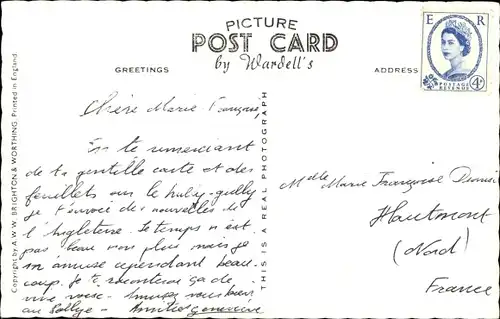 PICTURE
POST CARD
by Wardell's
GREETINGS
ADDRESS
E R
POSTAGE REVENUE
4d
Copyright by A.W.W. BRIGHTON & WORTHING. Printed in England.
THIS IS A REAL PHOTOGRAPH
Chère Marie-Françoise
En te remerciant
de ta gentille carte et des
feuillets sur le huly-gully
je t'envoie des nouvelles de
l'Angleterre. Le temps n'est
pas beau non plus mais je
m'amuse cependant beau-
coup. Je te raconterai ça de
vive voix. Amusez vous bien
au Amitiés Geneviève
Mdlle Marie Françoise
Hautmont
(Nord)
France